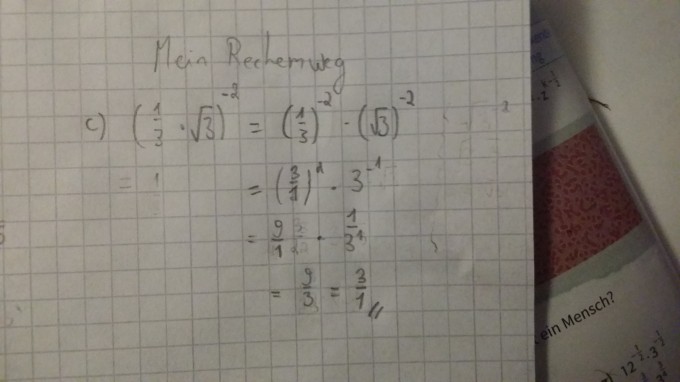 Mein Rechenweg
c) (1/3 · √3)^-2 = (1/3)^-2 · (√3)^-2
= 1 = (3/1)^2 · 3^-1
= 9/1 · 1/3^1
= 9/3 = 3/1 //
ein Mensch?
12^-1/2 · 3^-1/2